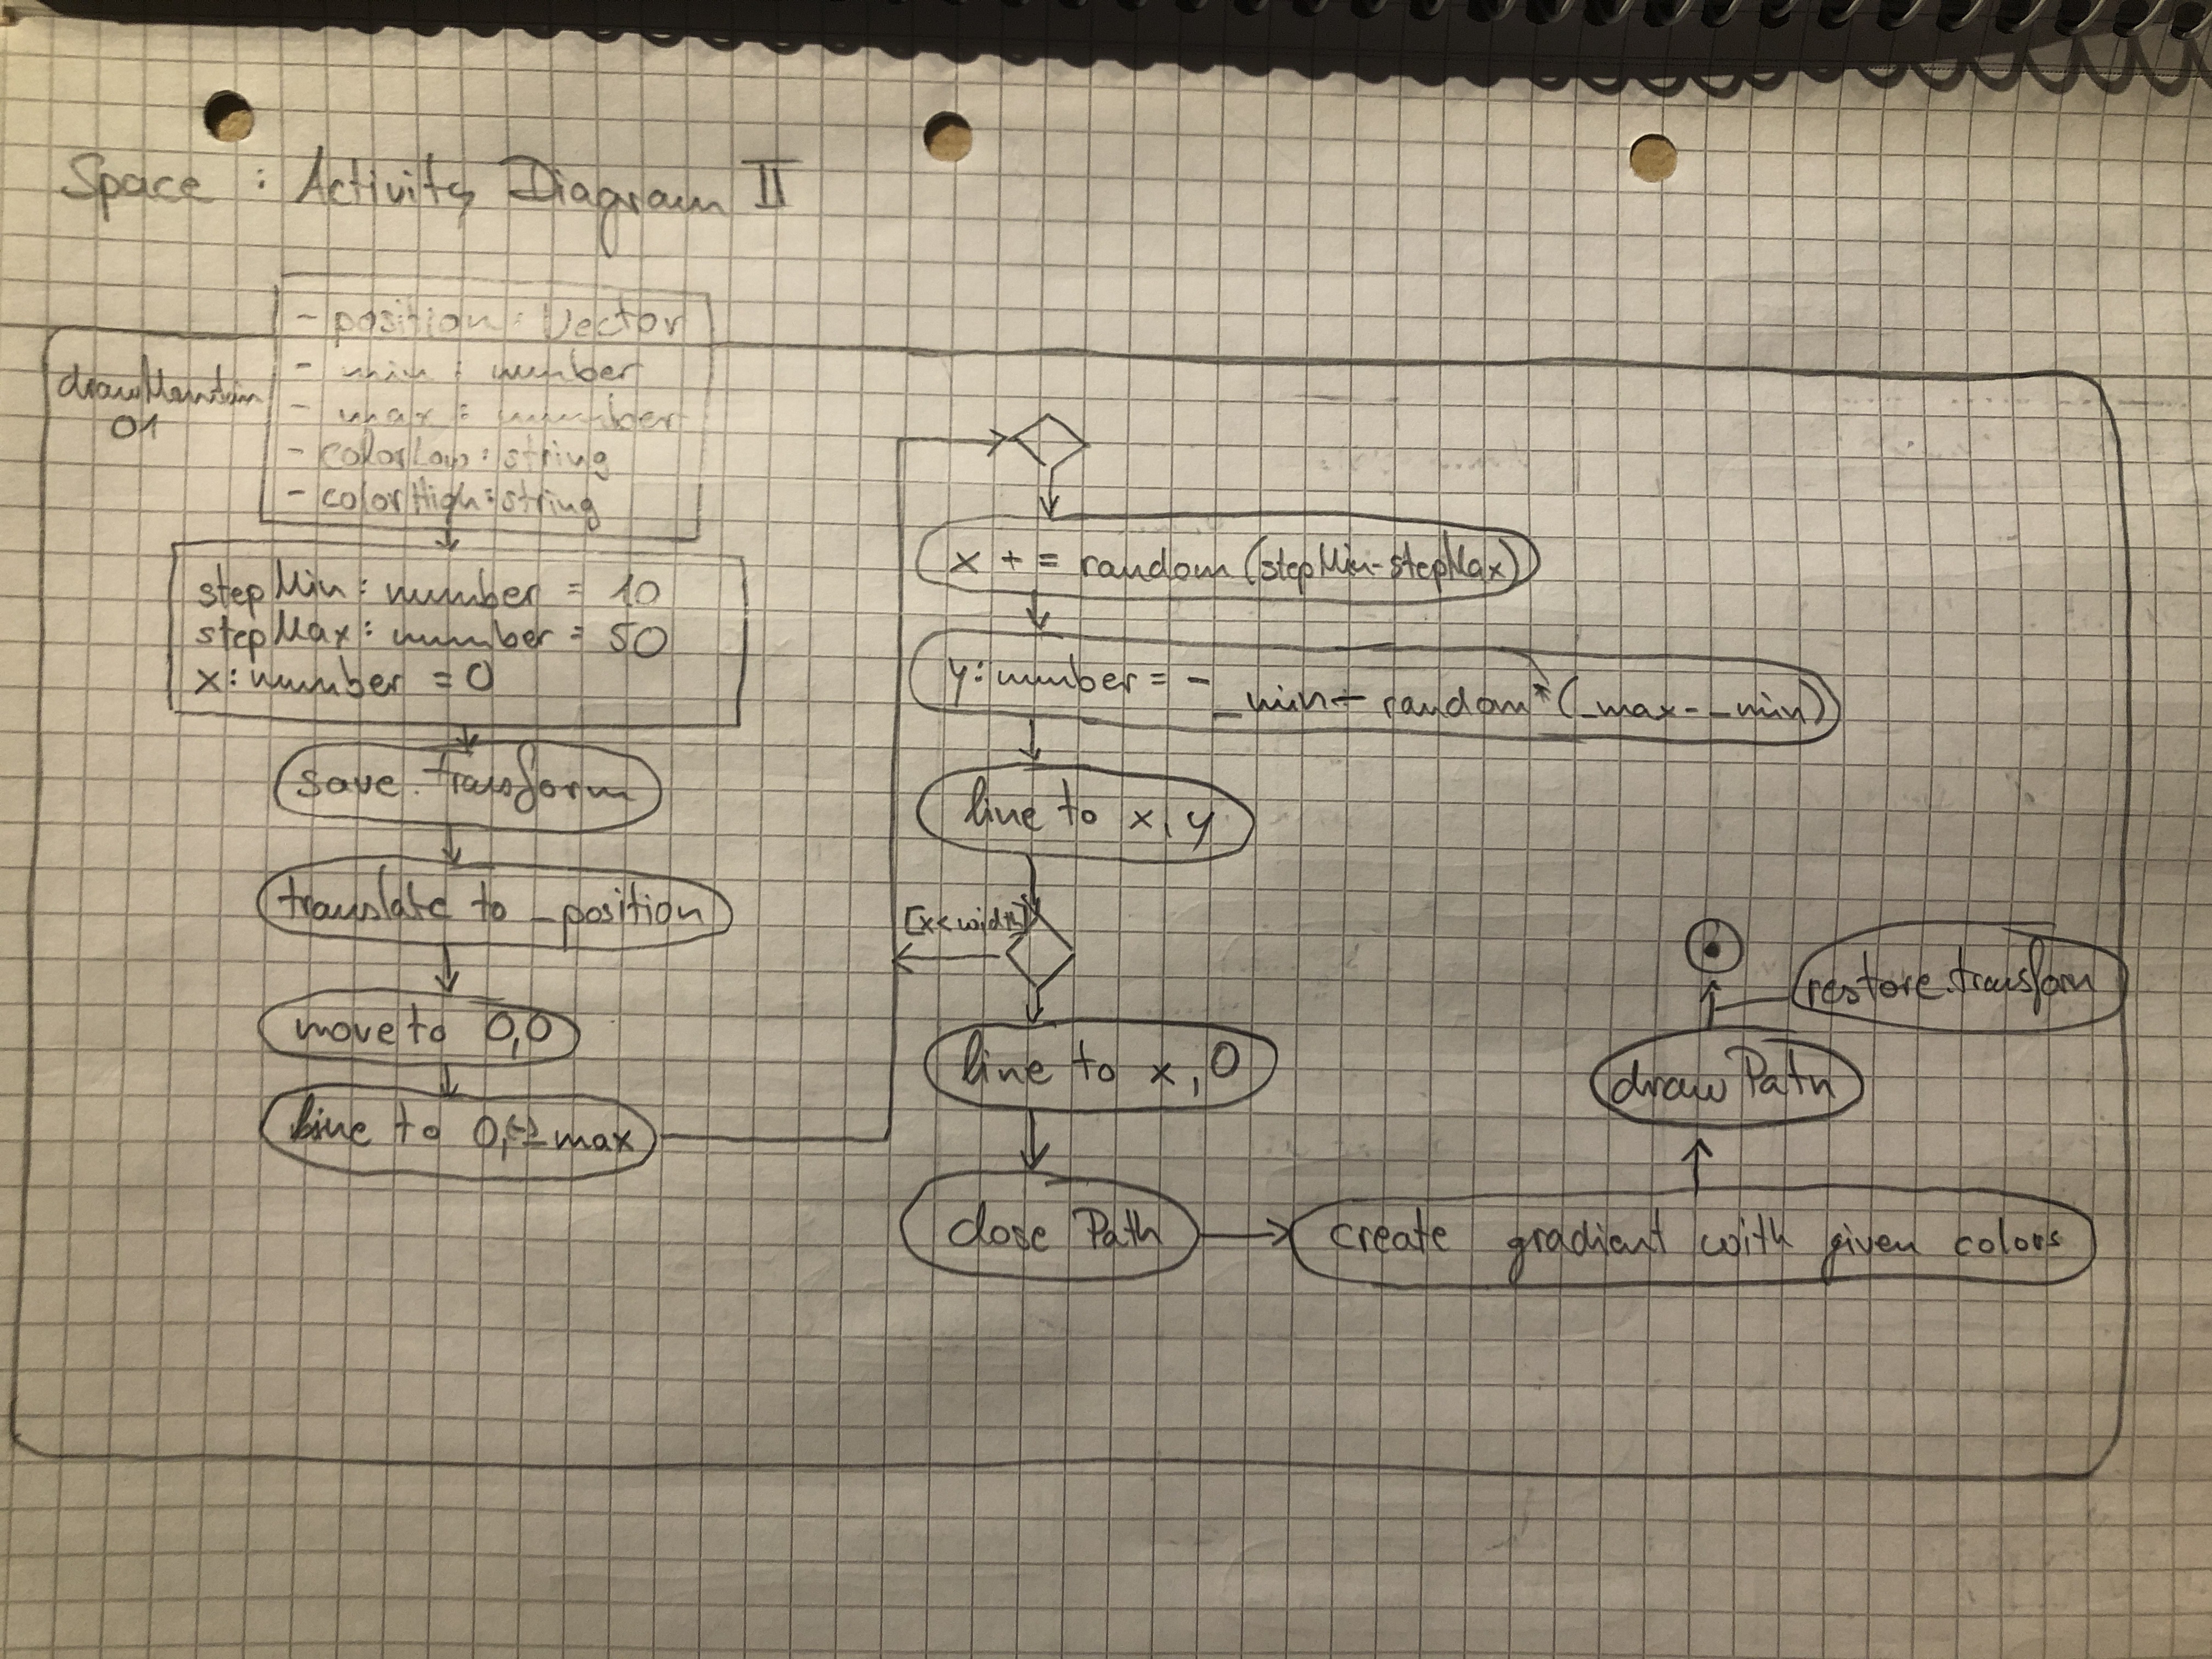 Space : Activity Diagram II
- position : Vector
- min : number
- max : number
- colorLow : string
- colorHigh : string
01
stepMin : number = 10
stepMax : number = 50
x : number = 0
save Transform
translate to _position
move to 0,0
line to 0,(-)_max
x += random (stepMin-stepMax)
y : number = - _min - random * (_max - _min)
line to x, y
[x<width]
line to x, 0
close Path
create gradient with given colors
draw Path
restore transform